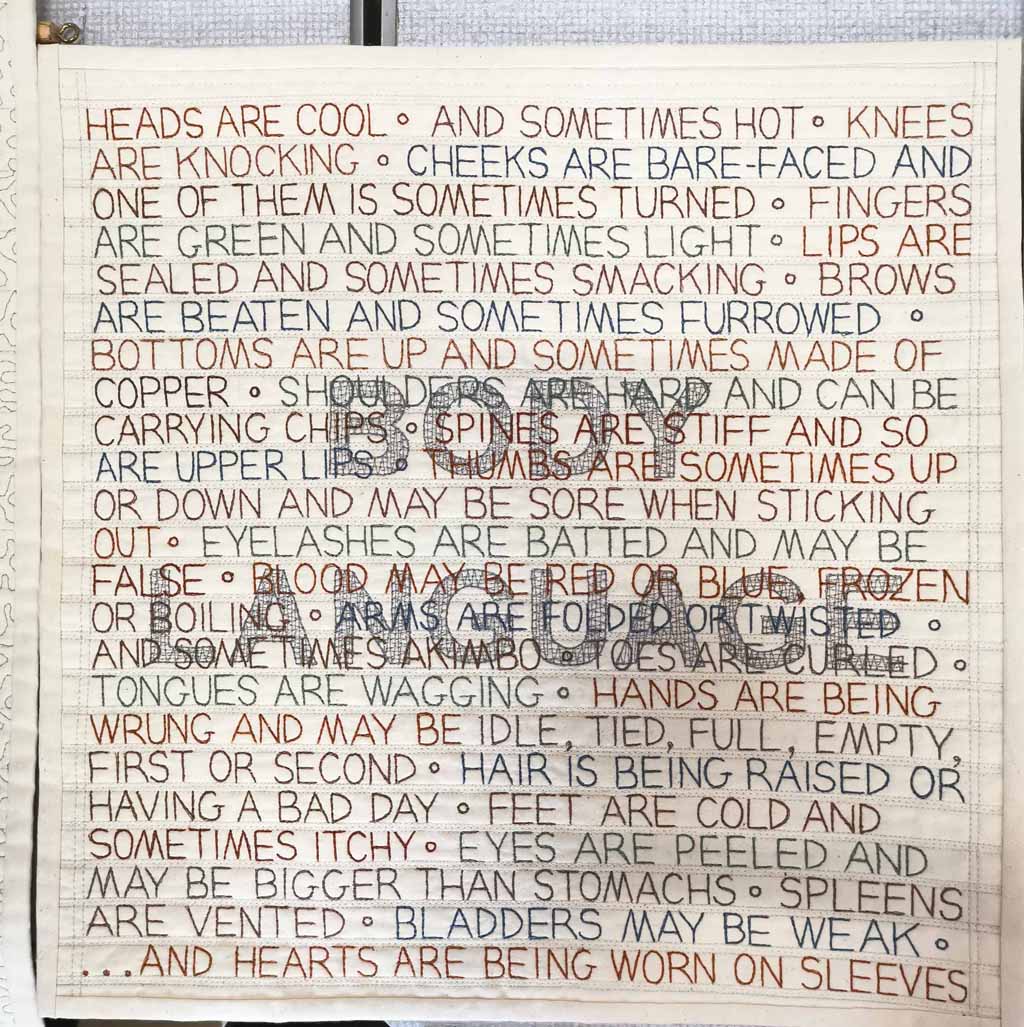 HEADS ARE COOL ∘ AND SOMETIMES HOT ∘ KNEES
ARE KNOCKING ∘ CHEEKS ARE BARE-FACED AND
ONE OF THEM IS SOMETIMES TURNED ∘ FINGERS
ARE GREEN AND SOMETIMES LIGHT ∘ LIPS ARE
SEALED AND SOMETIMES SMACKING ∘ BROWS
ARE BEATEN AND SOMETIMES FURROWED ∘
BOTTOMS ARE UP AND SOMETIMES MADE OF
COPPER ∘ SHOULDERS ARE HARD AND CAN BE
CARRYING CHIPS ∘ SPINES ARE STIFF AND SO
ARE UPPER LIPS ∘ THUMBS ARE SOMETIMES UP
OR DOWN AND MAY BE SORE WHEN STICKING
OUT ∘ EYELASHES ARE BATTED AND MAY BE
FALSE ∘ BLOOD MAY BE RED OR BLUE, FROZEN
OR BOILING ∘ ARMS ARE FOLDED OR TWISTED ∘
AND SOMETIMES AKIMBO ∘ TOES ARE CURLED ∘
TONGUES ARE WAGGING ∘ HANDS ARE BEING
WRUNG AND MAY BE IDLE, TIED, FULL, EMPTY,
FIRST OR SECOND ∘ HAIR IS BEING RAISED OR
HAVING A BAD DAY ∘ FEET ARE COLD AND
SOMETIMES ITCHY ∘ EYES ARE PEELED AND
MAY BE BIGGER THAN STOMACHS ∘ SPLEENS
ARE VENTED ∘ BLADDERS MAY BE WEAK ∘
...AND HEARTS ARE BEING WORN ON SLEEVES
BODY
LANGUAGE